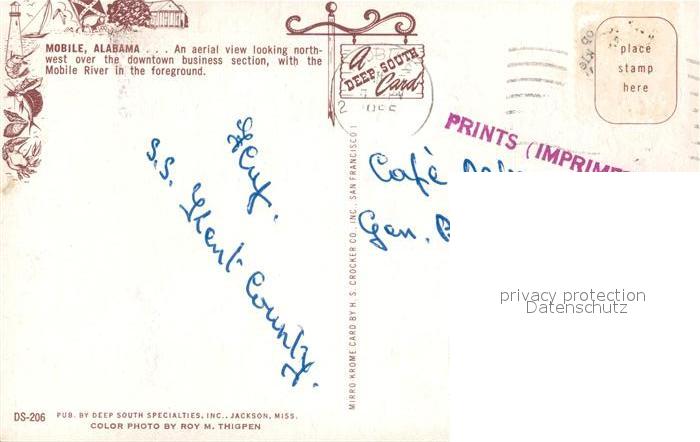 MOBILE, ALABAMA . . . An aerial view looking north-
west over the downtown business section, with the
Mobile River in the foreground.
A
DEEP SOUTH
Card
place
stamp
here
PRINTS (IMPRIME
Café
Gen. B
S.S. Ghent County.
MIRRO KROME CARD BY H. S. CROCKER CO., INC., SAN FRANCISCO 1
privacy protection
Datenschutz
DS-206 PUB. BY DEEP SOUTH SPECIALTIES, INC., JACKSON, MISS.
COLOR PHOTO BY ROY M. THIGPEN